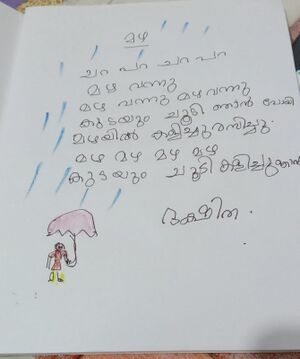 മഴ
ചറ പറ ചറ പറ
മഴ വന്നു
മഴ വന്നു മഴവന്നു
കുടയും ചൂടി ഞാൻ പോയി
മഴയിൽ കളിച്ചുരസിച്ചു.
മഴ മഴ മഴ മഴ
കുടയും ചൂടി കളിച്ചുഞാൻ
ദക്ഷിത.